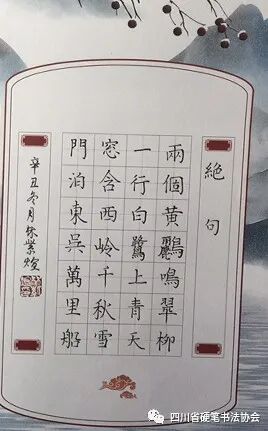 絕句
兩個黃鸝鳴翠柳
一行白鷺上青天
窓含西岭千秋雪
門泊東吳萬里船
辛丑冬月
四川省硬笔书法协会